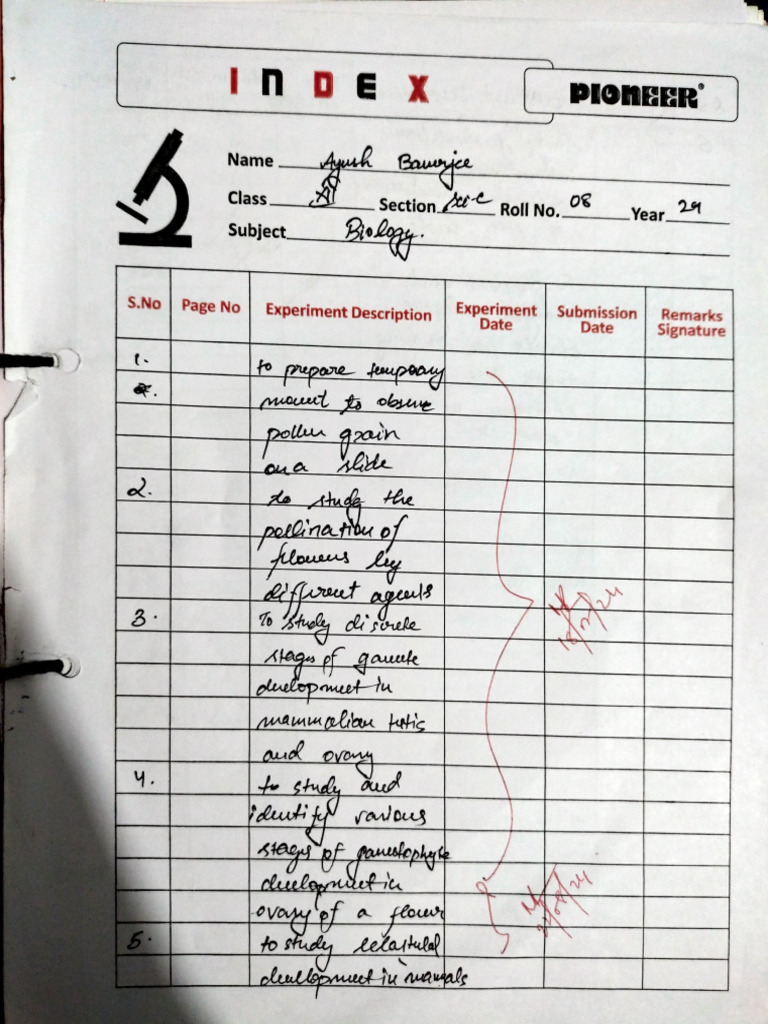 INDEX
PIONEER®
Name Ayush Banerjee
Class XII Section XII-C Roll No. 08 Year 24
Subject Biology.
S.No Page No Experiment Description Experiment Date Submission Date Remarks Signature
1. to prepare temporary
mount to observe
pollen grain
on a slide
2. to study the
pollination of
flowers by
different agents
3. To study discrete
stages of gamete
development in
mammalian testis
and ovary
4. to study and
identify various
stages of gametophyte
development in
ovary of a flower
5. to study
development in mamals